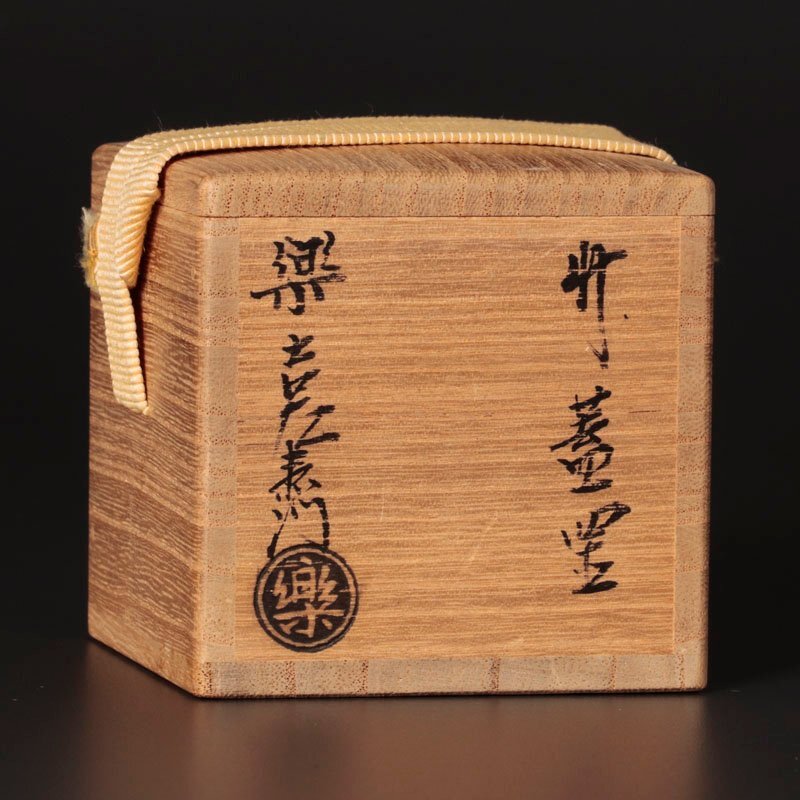 竹 蓋置
樂吉左衛門
樂